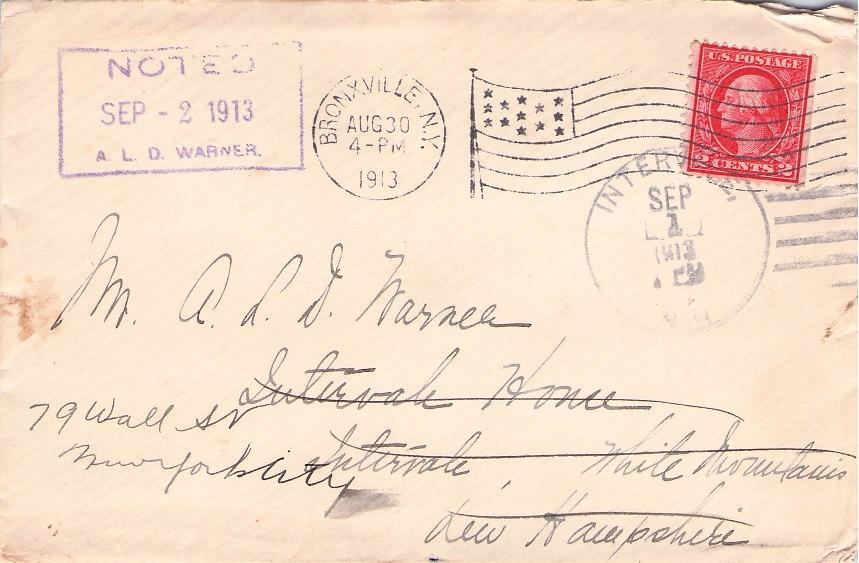 NOTED
SEP - 2 1913
A. L. D. WARNER.
BRONXVILLE, N.Y.
AUG 30
4-PM
1913
U.S. POSTAGE
2 CENTS 2
INTERVALE,
SEP
1
1913
PM
N. H.
Mr. A. L. D. Warner
Intervale House
Intervale, White Mountains
New Hampshire
79 Wall St
New York City